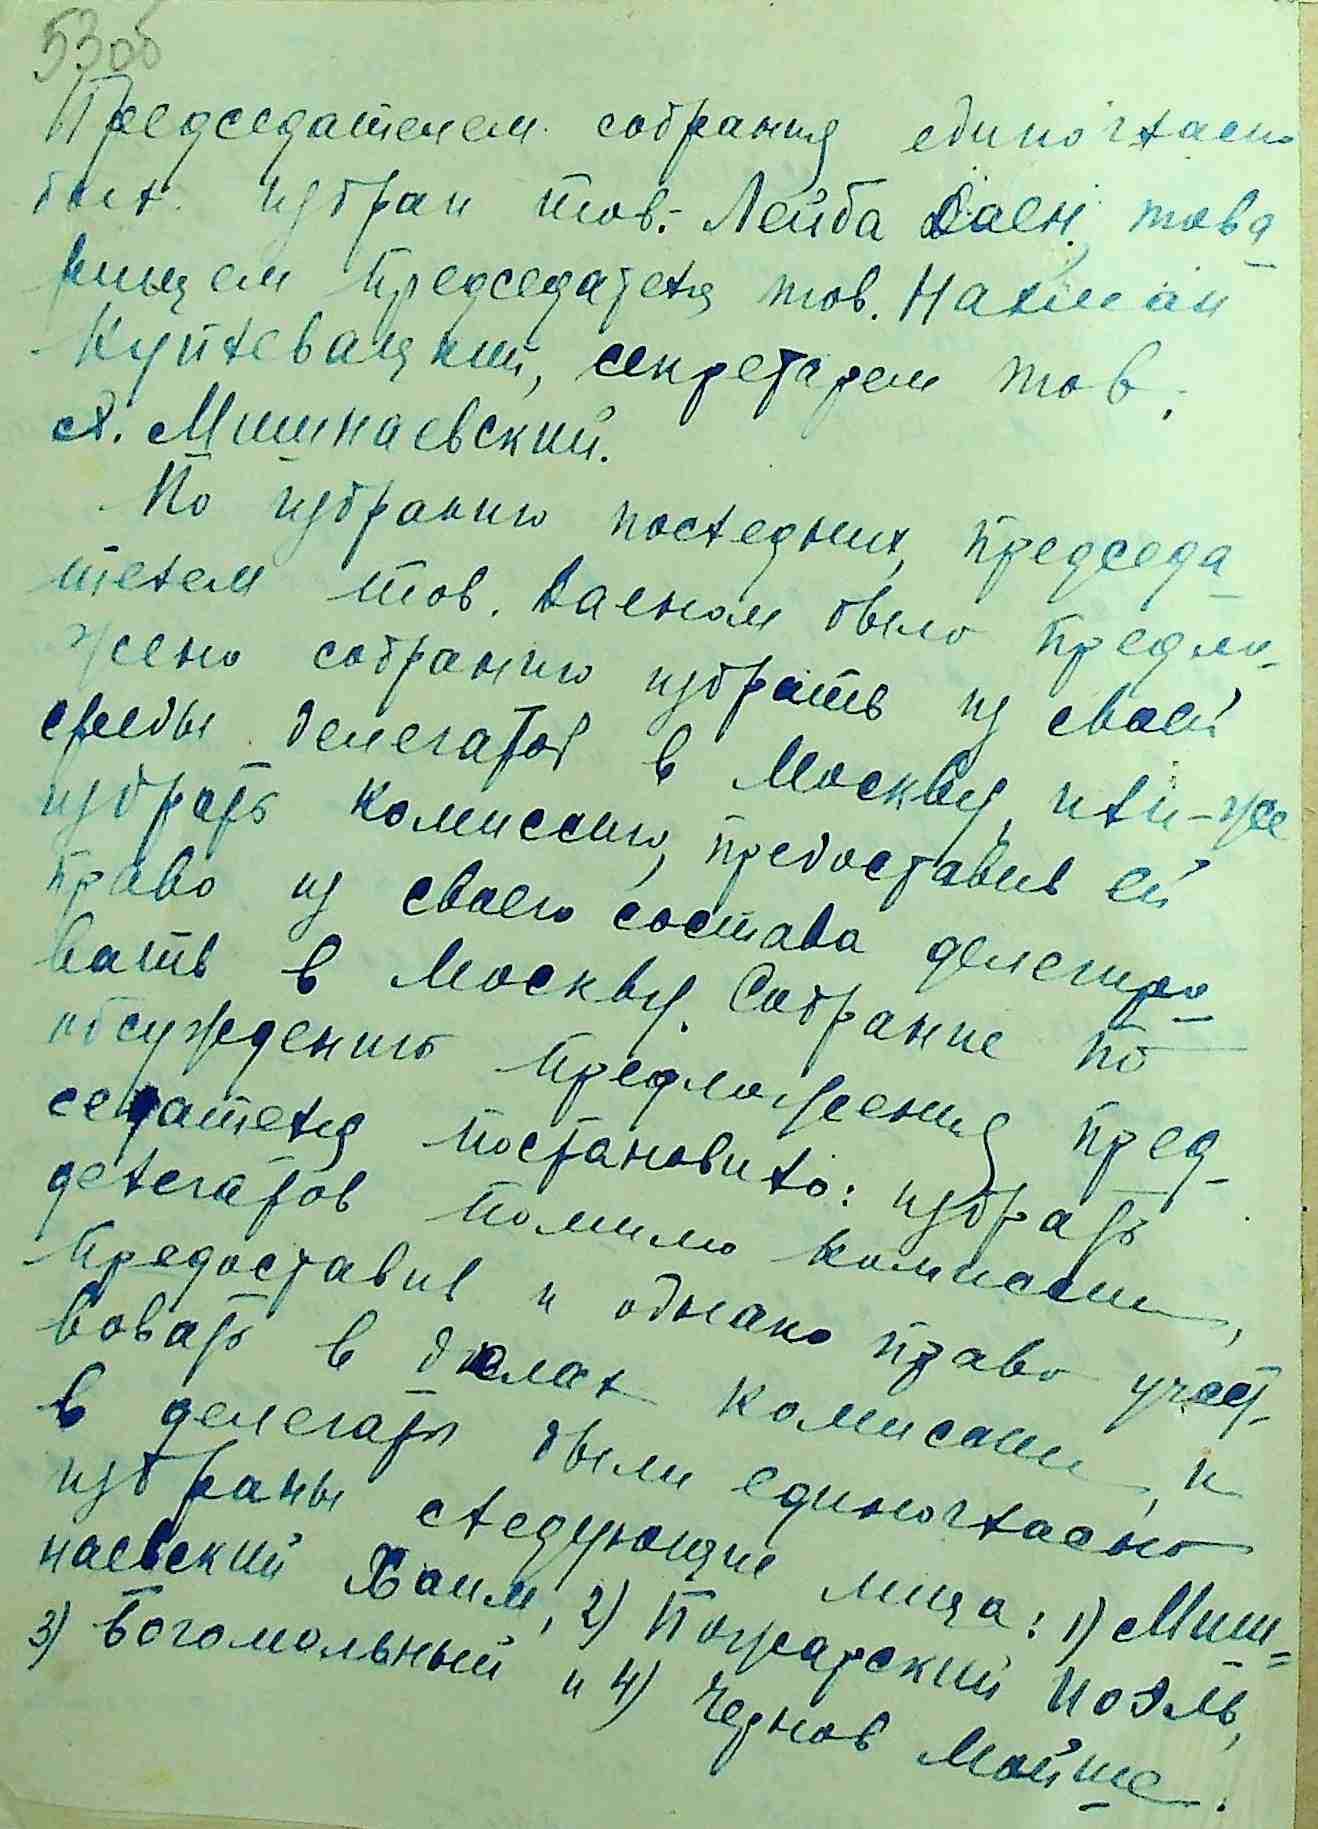 53 об
Председателем собрания единогласно
был избран тов. Лейба Даен, това
рищем председателя тов. Нахман
Куплевацкий, секретарем тов.
Х. Мишнаевский.
По избранию последних, председа
телем тов. Даеном было предло-
жено собранию избрать из своей
среды делегатов в Москву, или-же
избрать комиссию, предоставив ей
право из своего состава делегиро
вать в Москву. Собрание по
обсуждению предложения пред-
седателя постановило: избрать
делегатов помимо комиссии,
предоставив и однако право участ-
вовать в делах комиссии, и
в делегаты были единогласно
избраны следующие лица: 1) Миш-
наевский Хаим, 2) Пожарский Иоэль,
3) Богомольный и 4) Чернов Мойше.